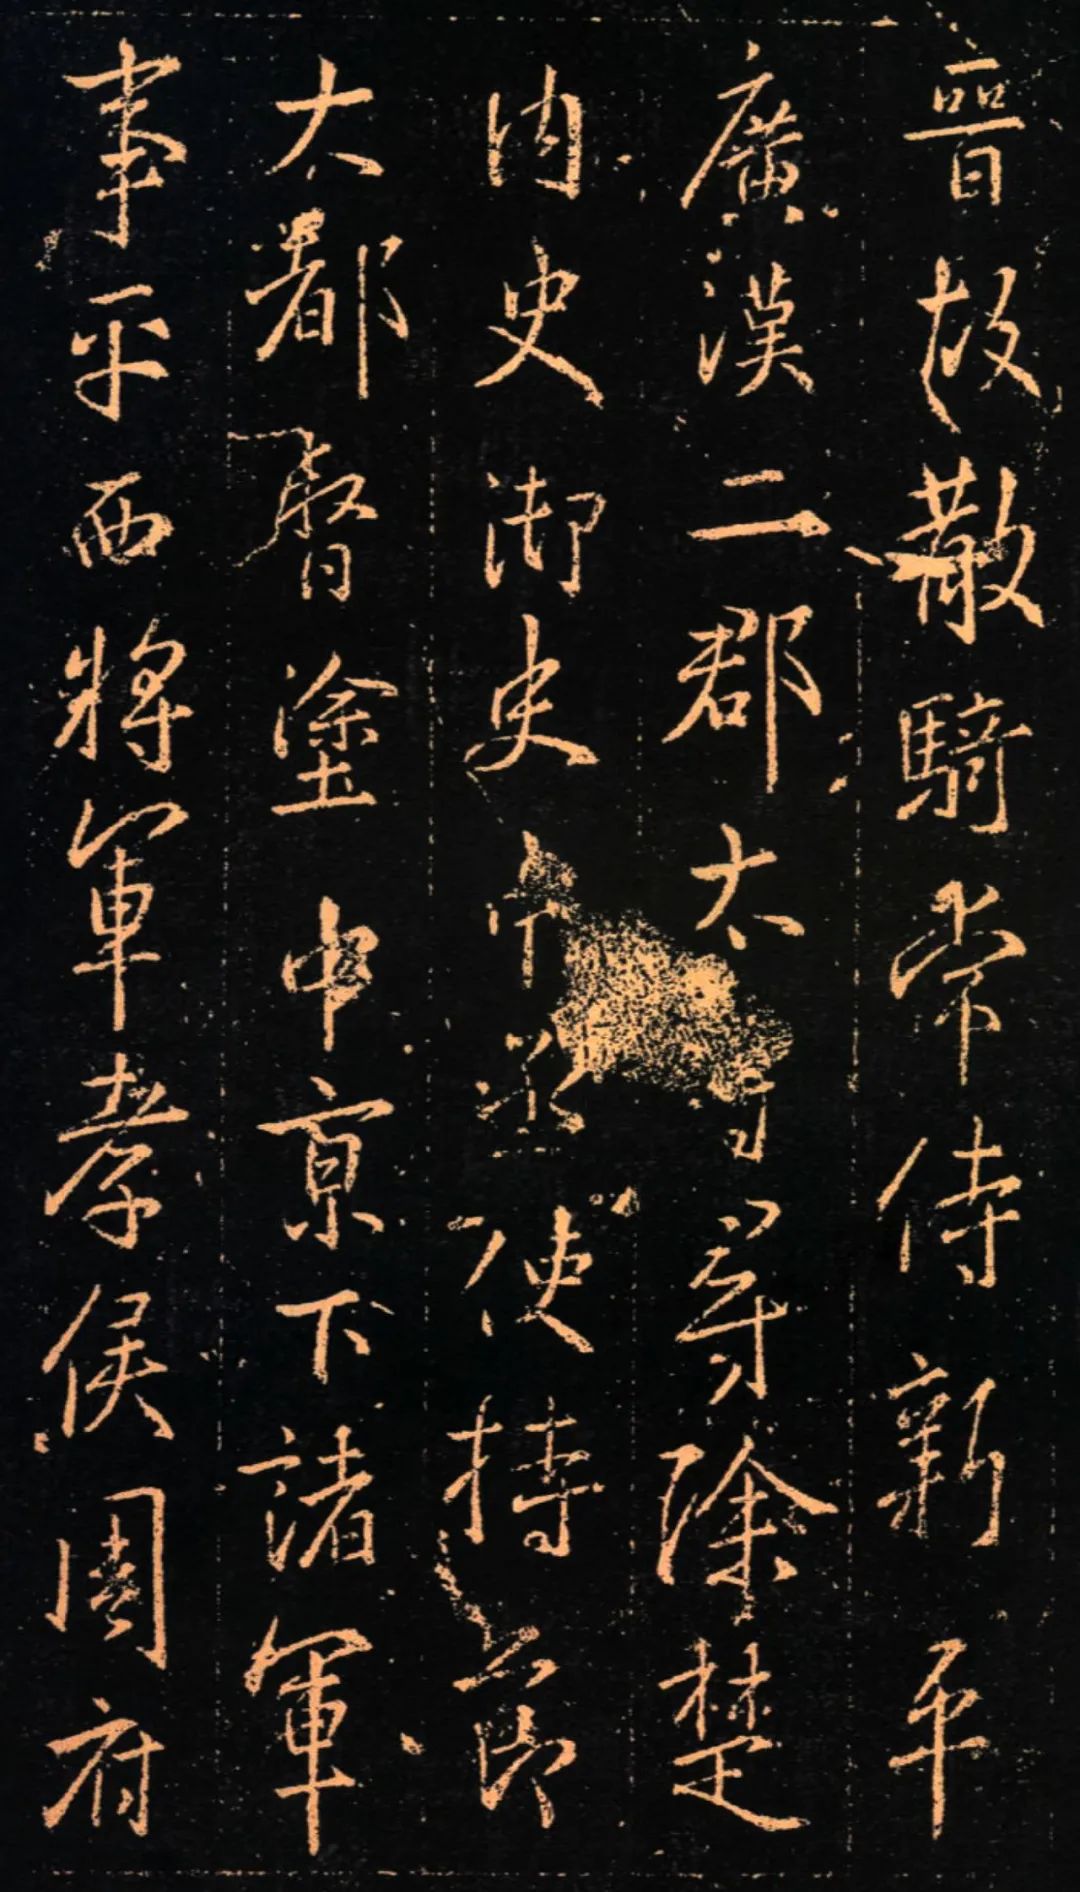 晉故散騎常侍新平
廣漢二郡太守尋除楚
内史御史中丞使持節
大都督塗中京下諸軍
事平西將軍孝侯周府